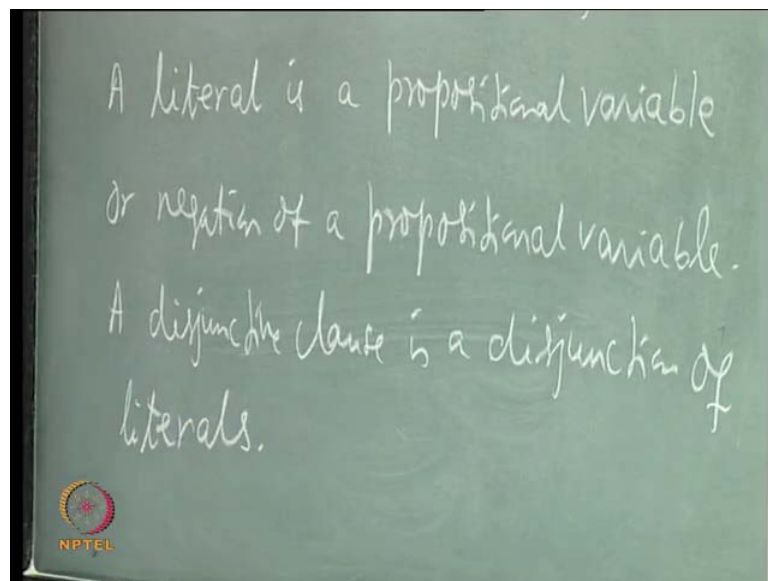 A literal is a propositional variable
or negation of a propositional variable.
A disjunctive clause is a disjunction of
literals.
NPTEL